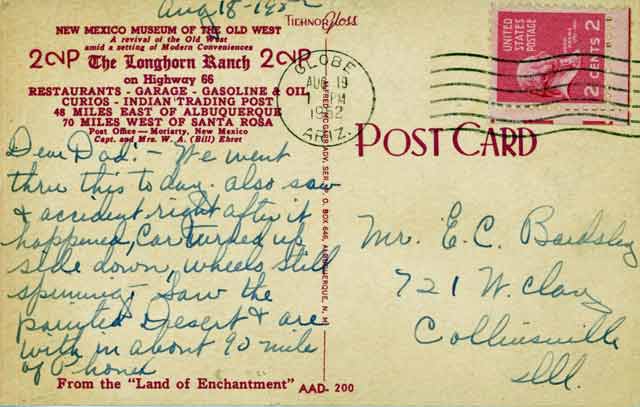 Aug 18-1952
NEW MEXICO MUSEUM OF THE OLD WEST
A revival of the Old West
amid a setting of Modern Conveniences
The Longhorn Ranch
on Highway 66
RESTAURANTS - GARAGE - GASOLINE & OIL
CURIOS - INDIAN TRADING POST
48 MILES EAST OF ALBUQUERQUE
70 MILES WEST OF SANTA ROSA
Post Office — Moriarty, New Mexico
Capt. and Mrs. W. A. (Bill) Ehret
Dear Dad! We went
thru this today. also saw
& accident right after it
happened, Car turned up
side down, wheels still
spinning. Saw the
painted Desert & are
with in about 90 mile
of
From the "Land of Enchantment"
AAD-200
TICHNOR Gloss
ADV. SER. P. O. BOX 646, ALBUQUERQUE, N. M.
GLOBE
AUG 19
1 PM
1952
ARIZ.
UNITED
STATES
POSTAGE
2 CENTS 2
POST CARD
Mr. E. C. Bardsley
721 W. Clay
Collinsville
Ill.